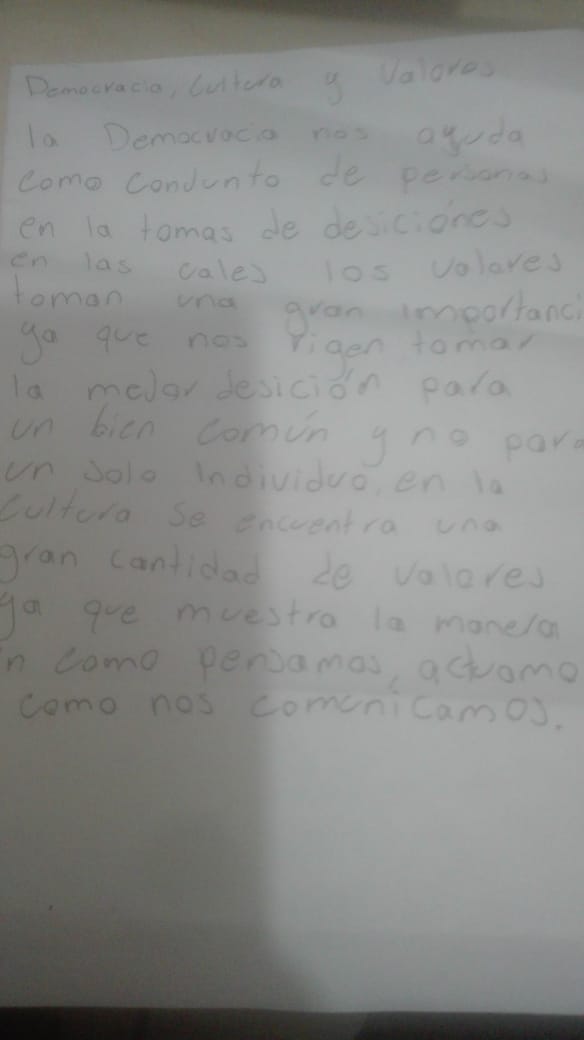 Democracia, Cultura y Valores
la Democracia nos ayuda
como condunto de personas
en la tomas de desiciones
en las cales los valores
toman una gran importanci
ya que nos rigen tomar
la mejor desición para
un bien común y no para
un solo individuo, en la
Cultura se encuentra una
gran cantidad de valores
ya que muestra la manera
n como pensamos, actuamo
como nos comunicamos.